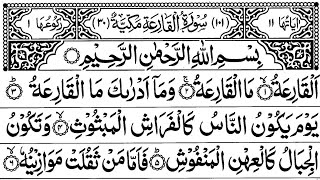 اٰیاتها ١١ (١٠١) سُوْرَةُ الْقَارِعَةِ مَكِّیَّةٌ (٣٠) رکوعها ١
بِسْمِ اللّٰهِ الرَّحْمٰنِ الرَّحِیْمِ
اَلْقَارِعَةُ ۙ﴿١﴾ مَا الْقَارِعَةُ ۚ﴿٢﴾ وَمَاۤ اَدْرٰىكَ مَا الْقَارِعَةُ ؕ﴿٣﴾
یَوْمَ یَكُوْنُ النَّاسُ كَالْفَرَاشِ الْمَبْثُوْثِ ۙ﴿٤﴾ وَتَكُوْنُ
الْجِبَالُ كَالْعِهْنِ الْمَنْفُوْشِ ؕ﴿٥﴾ فَاَمَّا مَنْ ثَقُلَتْ مَوَازِیْنُهٗ ۙ﴿٦﴾